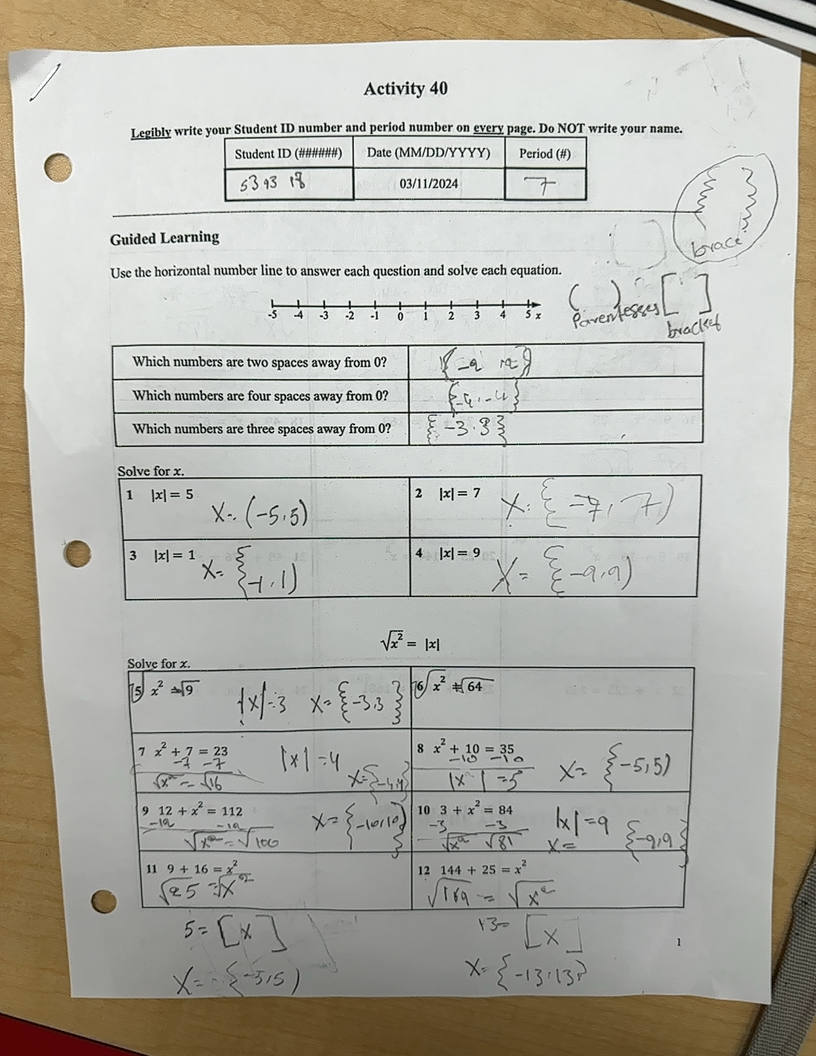 Activity 40
Legibly write your Student ID number and period number on every page. Do NOT write your name.
Student ID (######) Date (MM/DD/YYYY) Period (#)
539318 03/11/2024 7
brace
Guided Learning
Use the horizontal number line to answer each question and solve each equation.
( ) [ ]
-5 -4 -3 -2 -1 0 1 2 3 4 5 x
Parentesses
bracket
Which numbers are two spaces away from 0? {-2, 2}
Which numbers are four spaces away from 0? {-4, -4}
Which numbers are three spaces away from 0? {-3, 3}
Solve for x.
1 |x| = 5 X= (-5,5)
2 |x| = 7 X= {-7, 7)
3 |x| = 1 X= {-1, 1)
4 |x| = 9 X= {-9,9)
√x² = |x|
Solve for x.
5 √x² = √9 |x|=3 X= {-3,3}
6 √x² = √64
7 x² + 7 = 23 |x| = 4
-7 -7
√x² = √16 X={-4,4}
8 x² + 10 = 35
-10 -10
|x| = 5 X= {-5,5)
9 12 + x² = 112
-12 -12
√x² = √100 X={-10,10}
10 3 + x² = 84 |x| = 9
-3 -3
√x² √81 X= {-9,9}
11 9 + 16 = x²
√25 = √x²
12 144 + 25 = x²
√169 = √x²
5 = [x]
X= {-5,5)
13= [x]
X= {-13,13}
1